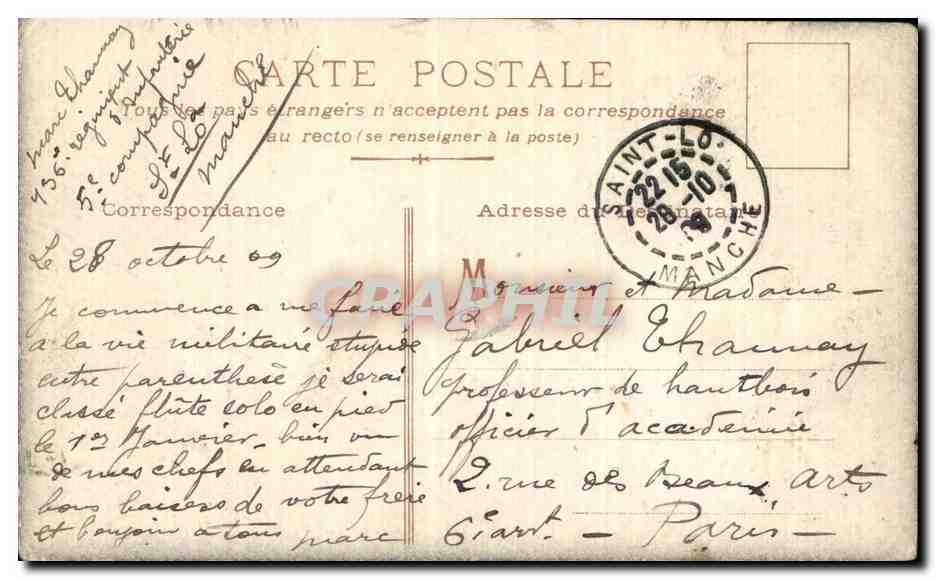 Marc Thaunay
136e régiment
d'infanterie
5e compagnie
St Lô
Manche
CARTE POSTALE
Tous les pays étrangers n'acceptent pas la correspondance
au recto (se renseigner à la poste)
SAINT-LO
22 15
28 -10
09
MANCHE
Correspondance
Le 28 octobre 09
Je commence a me faire
à la vie militaire stupide
entre parenthèse je serai
classé flûte solo en pied
le 1er Janvier - bien vu
de mes chefs en attendant
bons baisers de votre frère
et bonjour a tous Marc
Adresse du Destinataire
M
Monsieur et Madame -
Gabriel Thaunay
professeur de hautbois
officier d'académie
2. rue des Beaux Arts
6e arrt. - Paris -
CPAPHIL